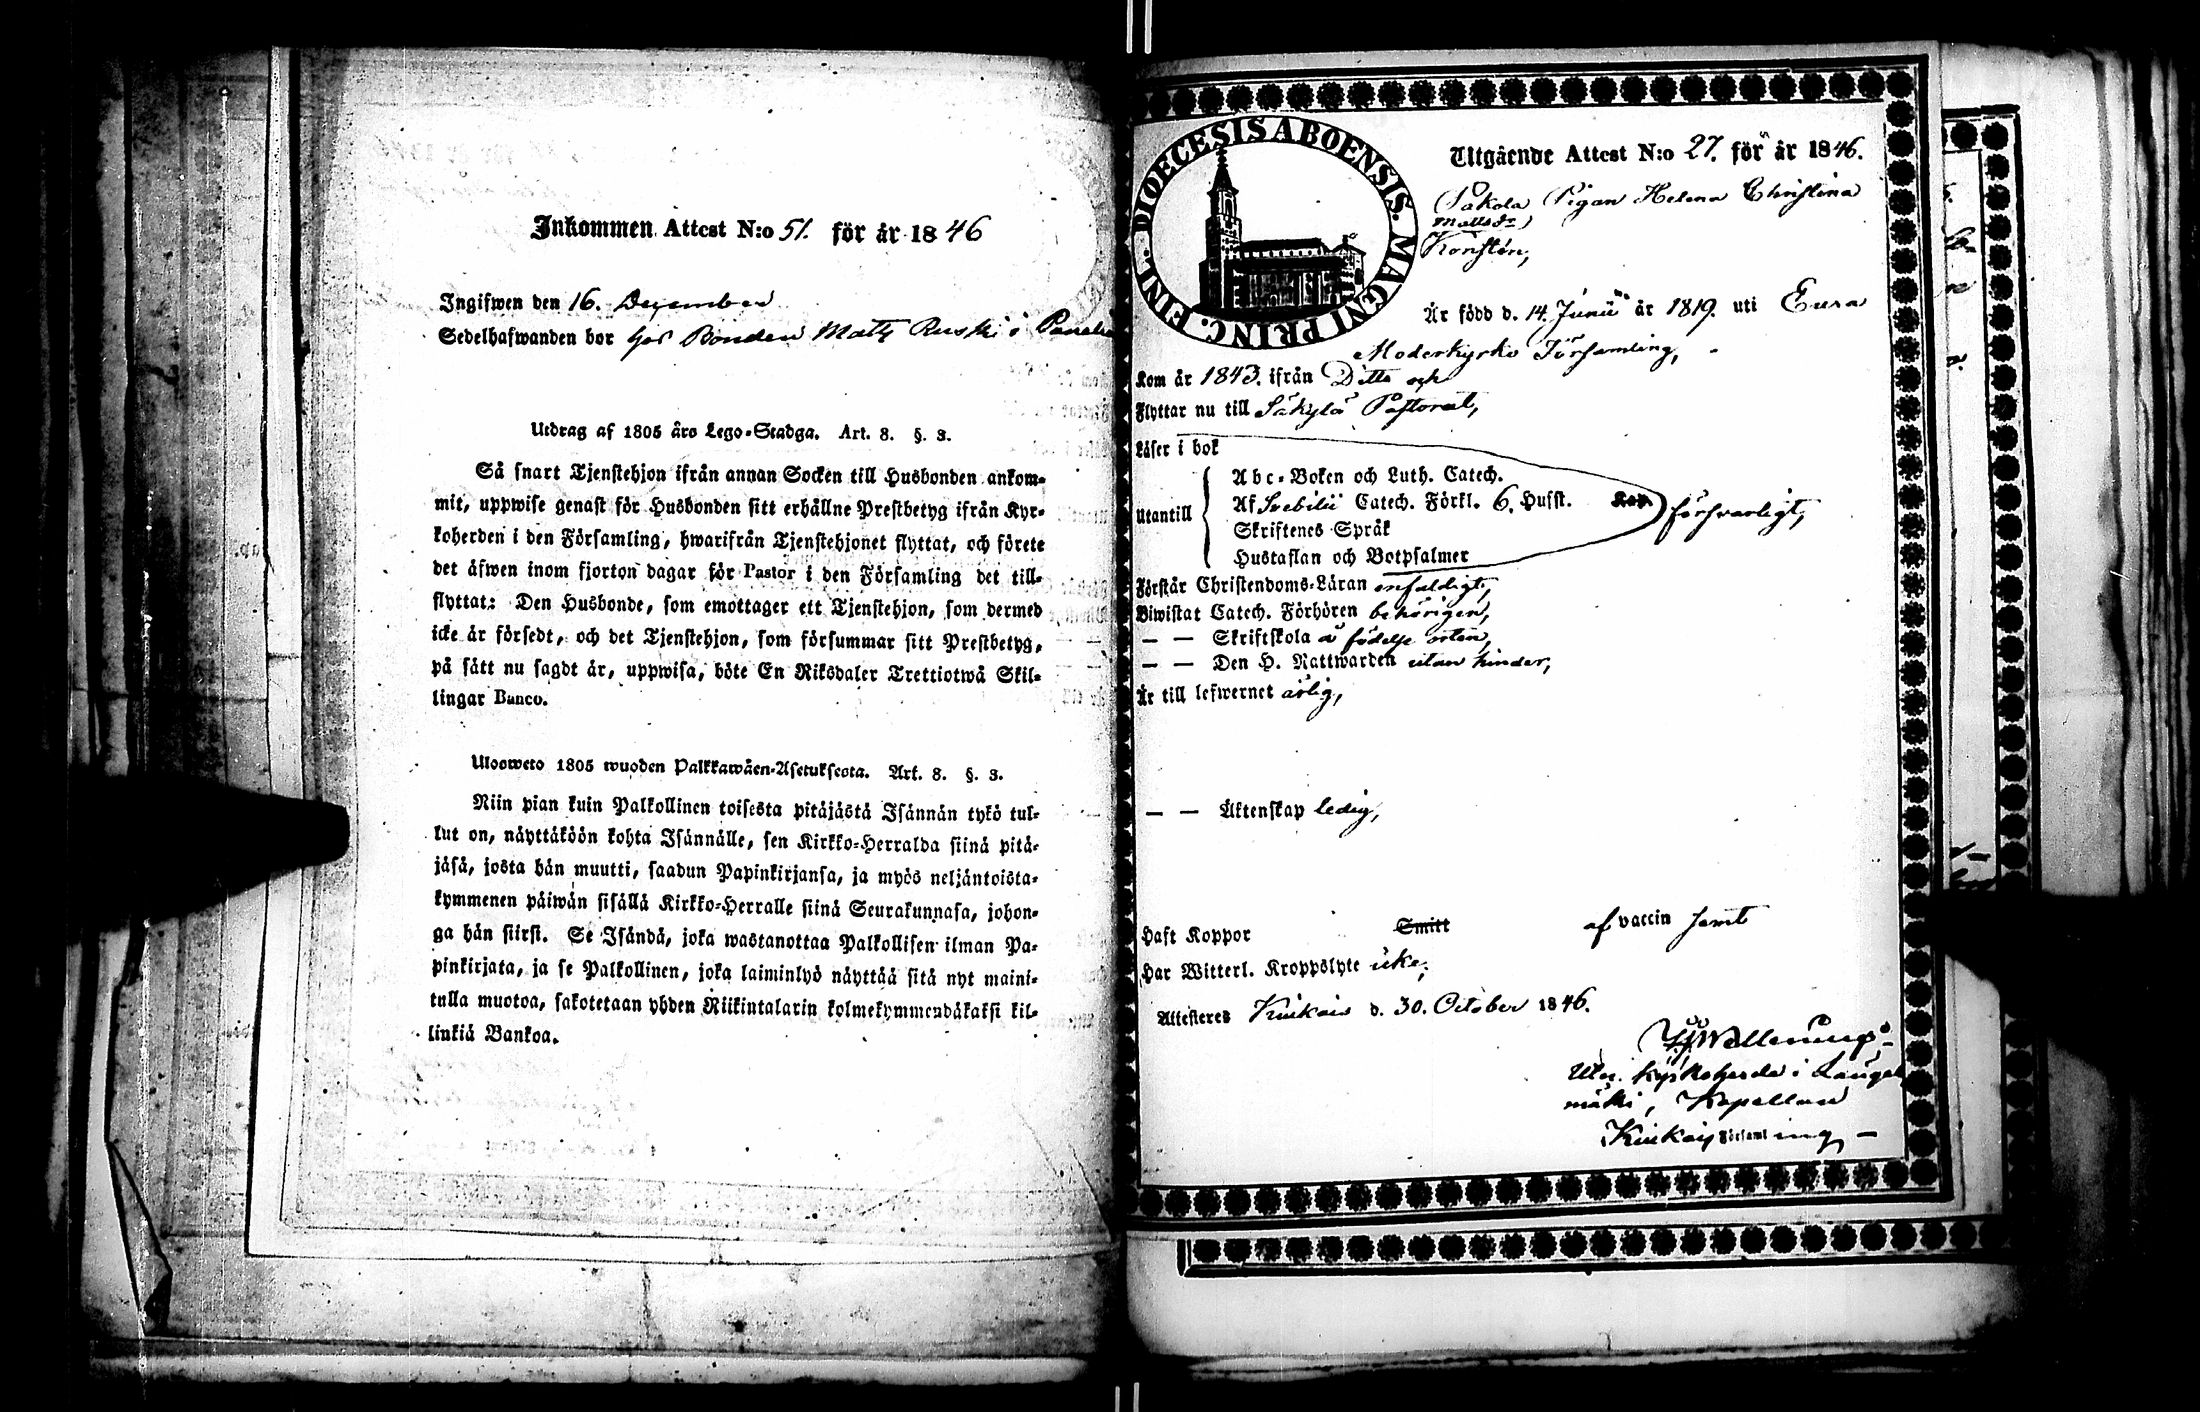 Inkommen Attest N:o 51. för år 1846
Ingifwen den 16. December
Sedelhafwanden bor hos Bonden Matts Ruski i
Utdrag af 1805 års Lego-Stadga. Art. 8. §. 3.
Så snart Tjenstehjon ifrån annan Socken till Husbonden ankom-
mit, uppwise genast för Husbonden sitt erhållne Prestbetyg ifrån Kyr-
koherden i den Församling, hwarifrån Tjenstehjonet flyttat, och förete
det äfwen inom fjorton dagar för Pastor i den Församling det till-
flyttat: Den Husbonde, som emottager ett Tjenstehjon, som dermed
icke är försedt, och det Tjenstehjon, som försummar sitt Prestbetyg,
på sätt nu sagdt är, uppwisa, böte En Riksdaler Trettiotwå Skil-
lingar Banco.
Ulosweto 1805 wuoden Palkkawäen-Asetuksesta. Art. 8. §. 3.
Niin pian kuin Palkollinen toisesta pitäjästä Isännän tykö tul-
lut on, näyttäköön kohta Isännälle, sen Kirkko-Herralda siinä pitä-
jäsä, josta hän muutti, saadun Papinkirjansa, ja myös neljäntoista-
kymmenen päiwän sisällä Kirkko-Herralle siinä Seurakunnasa, johon-
ga hän siirsi. Se Isändä, joka wastanottaa Palkollisen ilman Pa-
pinkirjata, ja se Palkollinen, joka laiminlyö näyttää sitä nyt maini-
tulla muotoa, sakotetaan yhden Riikintalarin kolmekymmendäkaksi kil-
linkiä Bankoa.
DIOECESIS ABOENSIS. MAGNI PRINC. FINL.
Utgående Attest N:o 27. för år 1846.
Pigan Helena Christina
Mattsdr
Är född d. 14. Junii år 1819. uti Eura
Moderkyrko Församling,
Kom år 1843. ifrån Ditto och
Flyttar nu till Säkylä Pastorat,
Läser i bok
Abc-Boken och Luth. Catech.
Utantill Af Svebilii Catech. Förkl. 6. Hufst. Kap. försvarligt,
Skriftenes Språk
Hustaflan och Botpsalmer
Förstår Christendoms-Läran enfaldigt,
Biwistat Catech. Förhören behörigen,
— — Skriftskola å födelse orten,
— — Den H. Nattwarden utan hinder,
Är till lefwernet ärlig,
— — Äktenskap ledig,
Haft Koppor Smitt af vaccin samt
Har Witterl. Kroppslyte icke;
Attesteres Kiukais d. 30. October 1846.
Utn. Kyrkoherde i Längel
mäki, Kapellan
Kiukais Församling —